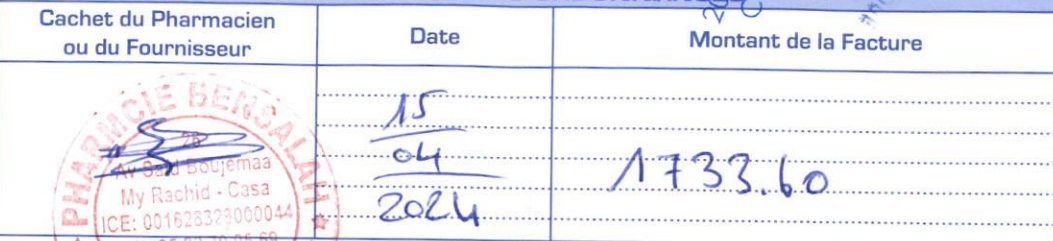 Cachet du Pharmacien
ou du Fournisseur
Date
Montant de la Facture
PHARMCIE BENSALAH
Av Said Boujemaa
My Rachid - Casa
ICE: 001628323000044
15
04
2024
1733.60